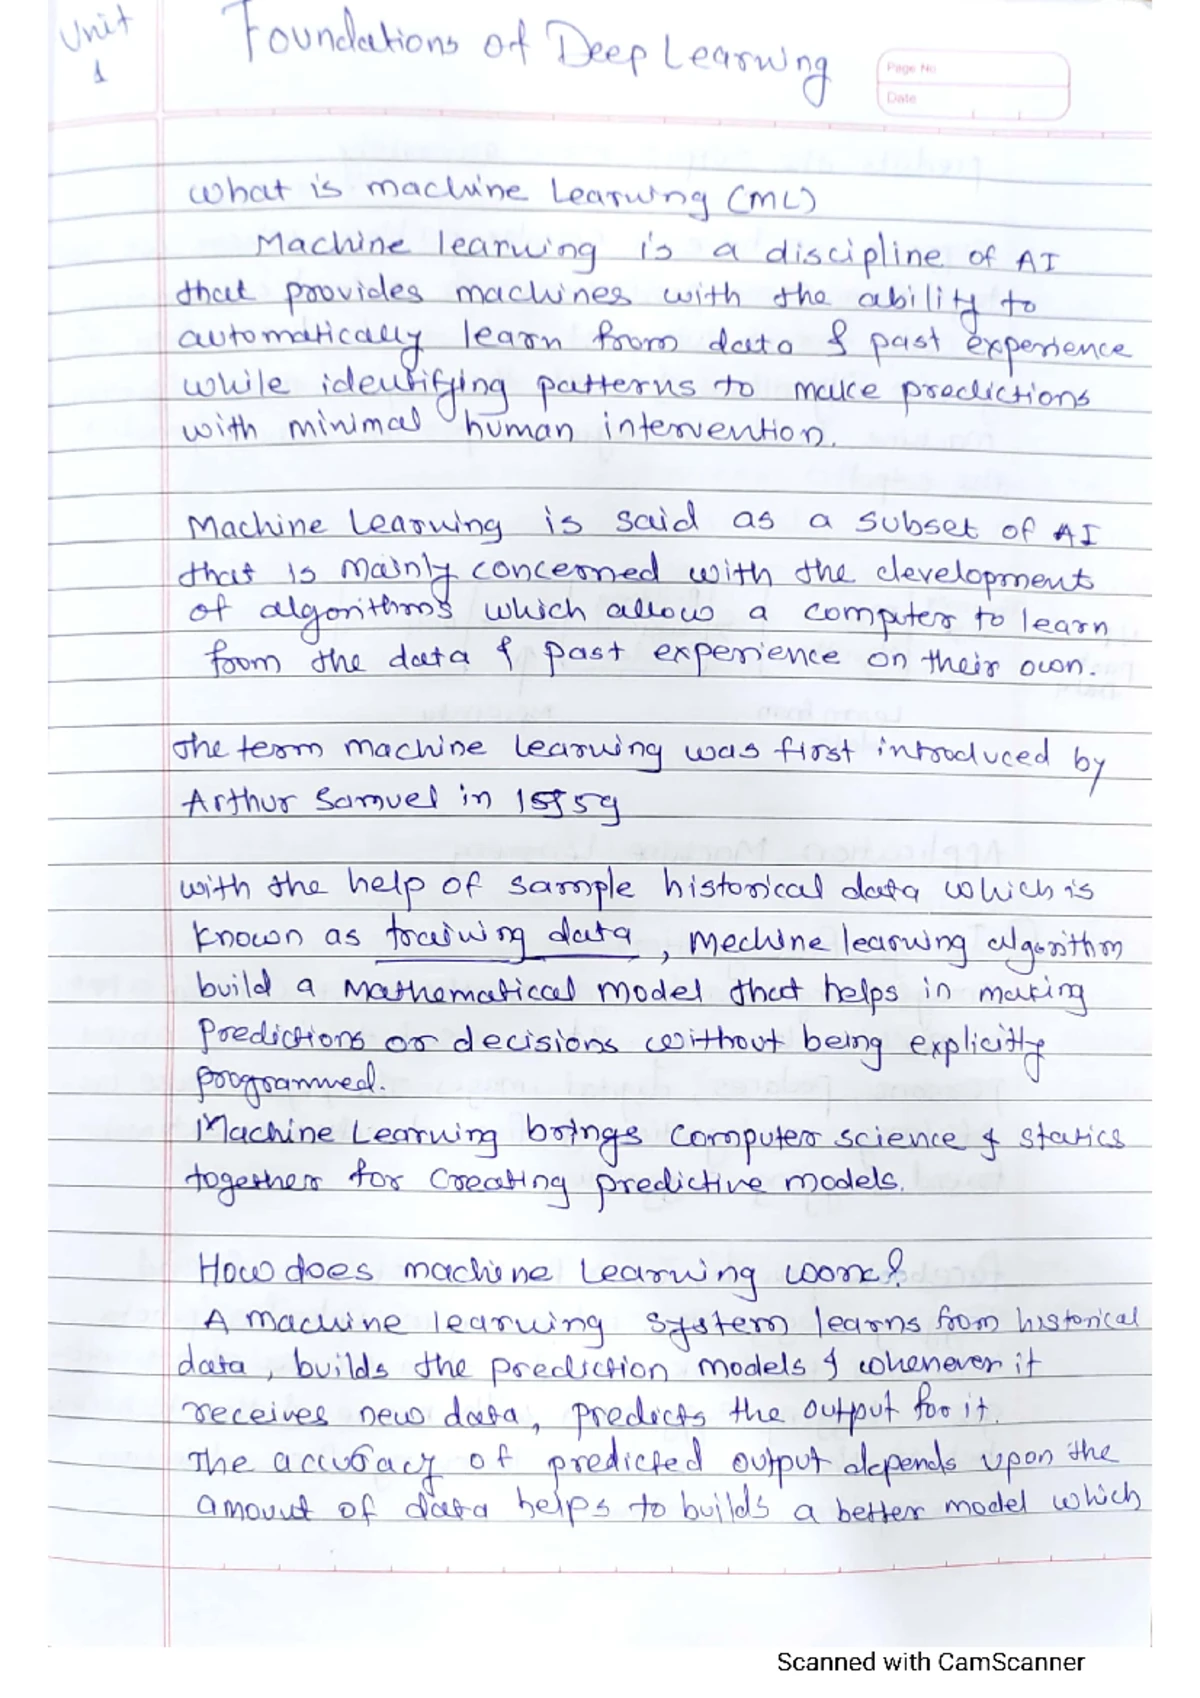 Unit
1
Foundations of Deep Learning
Page No.
Date
What is machine Learning (ML)
Machine learning is a discipline of AI
that provides machines with the ability to
automatically learn from data & past experience
while identifying patterns to make predictions
with minimal human intervention.
Machine Learning is said as a subset of AI
that is mainly concerned with the developments
of algorithms which allow a computer to learn
from the data & past experience on their own.
The term machine learning was first introduced by
Arthur Samuel in
with the help of sample historical data which is
known as training data, mechine learning algorithm
build a Mathematical model that helps in making
predictions or decisions without being explicitly
programmed.
Machine Learning brings computer science & statics
together for creating predictive models.
How does machine learning work?
A machine learning system learns from historical
data, builds the prediction models & whenever it
receives new data, predicts the output for it.
The accuracy of predicted output depends upon the
amount of data helps to builds a better model which
Scanned with CamScanner